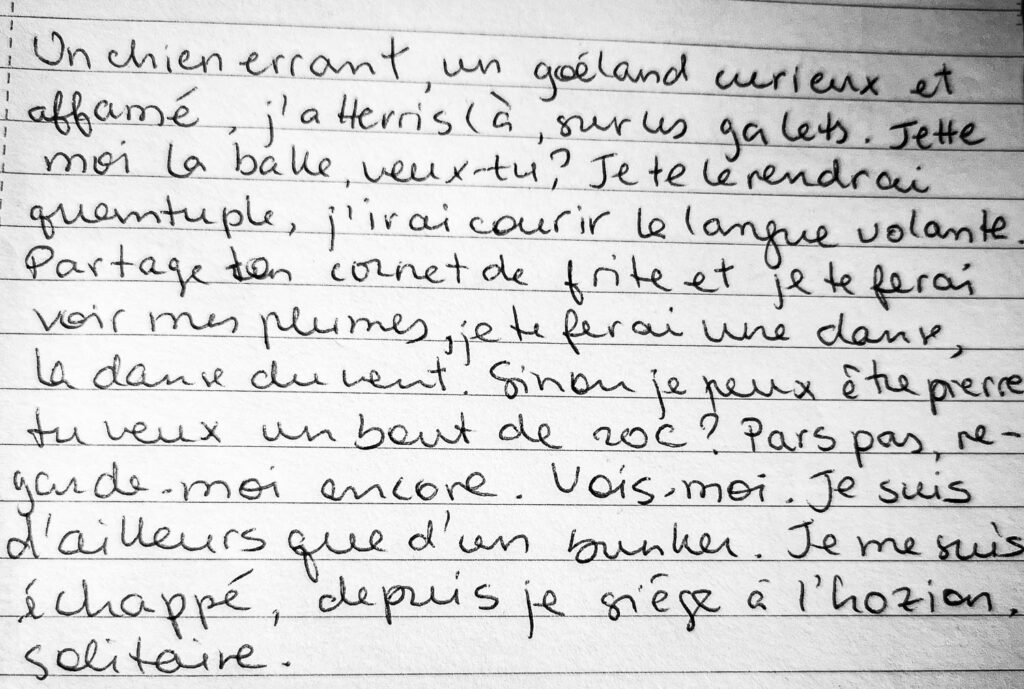 Un chien errant, un goéland curieux et
affamé, j'atterris là, sur les galets. Jette
moi la balle, veux-tu? Je te le rendrai
quemtuple, j'irai courir la langue volante.
Partage ton cornet de frite et je te ferai
voir mes plumes, je te ferai une danse,
la danse du vent. Sinon je peux être pierre
tu veux un bout de roc? Pars pas, re-
garde-moi encore. Vois-moi. Je suis
d'ailleurs que d'un bunker. Je me suis
échappé, depuis je siége à l'hozion,
solitaire.